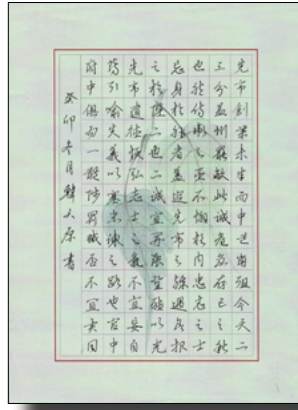 先帝創業未半而中道崩殂今天下
三分益州疲敝此誠危急存亡之秋
也然侍衛之臣不懈於內忠志之士
忘身於外者蓋追先帝之殊遇欲報
之於陛下也誠宜開張聖聽以光
先帝遺德恢弘志士之氣不宜妄自
引喻失義以塞忠諫之路也宮中
府中俱為一體陟罰臧否不宜異同
癸卯冬月韓大原書